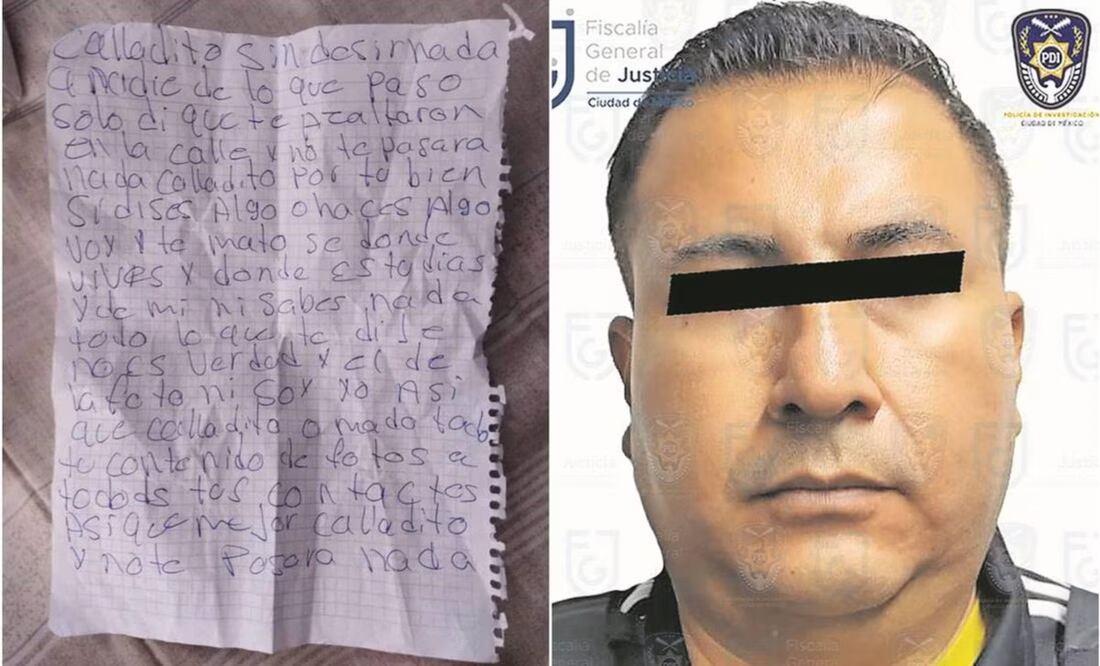 Calladito sin desir nada
a nadie de lo que paso
solo di que te azaltaron
en la calle y no te pasara
nada calladito por tu bien
Si dises Algo o haces Algo
voy y te mato se donde
vives y donde Estudias
y de mi ni sabes nada
todo lo que te dise
no es verdad y el de
la foto ni soy yo Asi
que calladito o mado todo
tu contenido de fotos a
todods tus contactos
Asi que mejor calladito
y no te Pasara nada
Fiscalía
General
de Justicia
Ciudad de México
PDI
POLICÍA DE INVESTIGACIÓN
CIUDAD DE MÉXICO